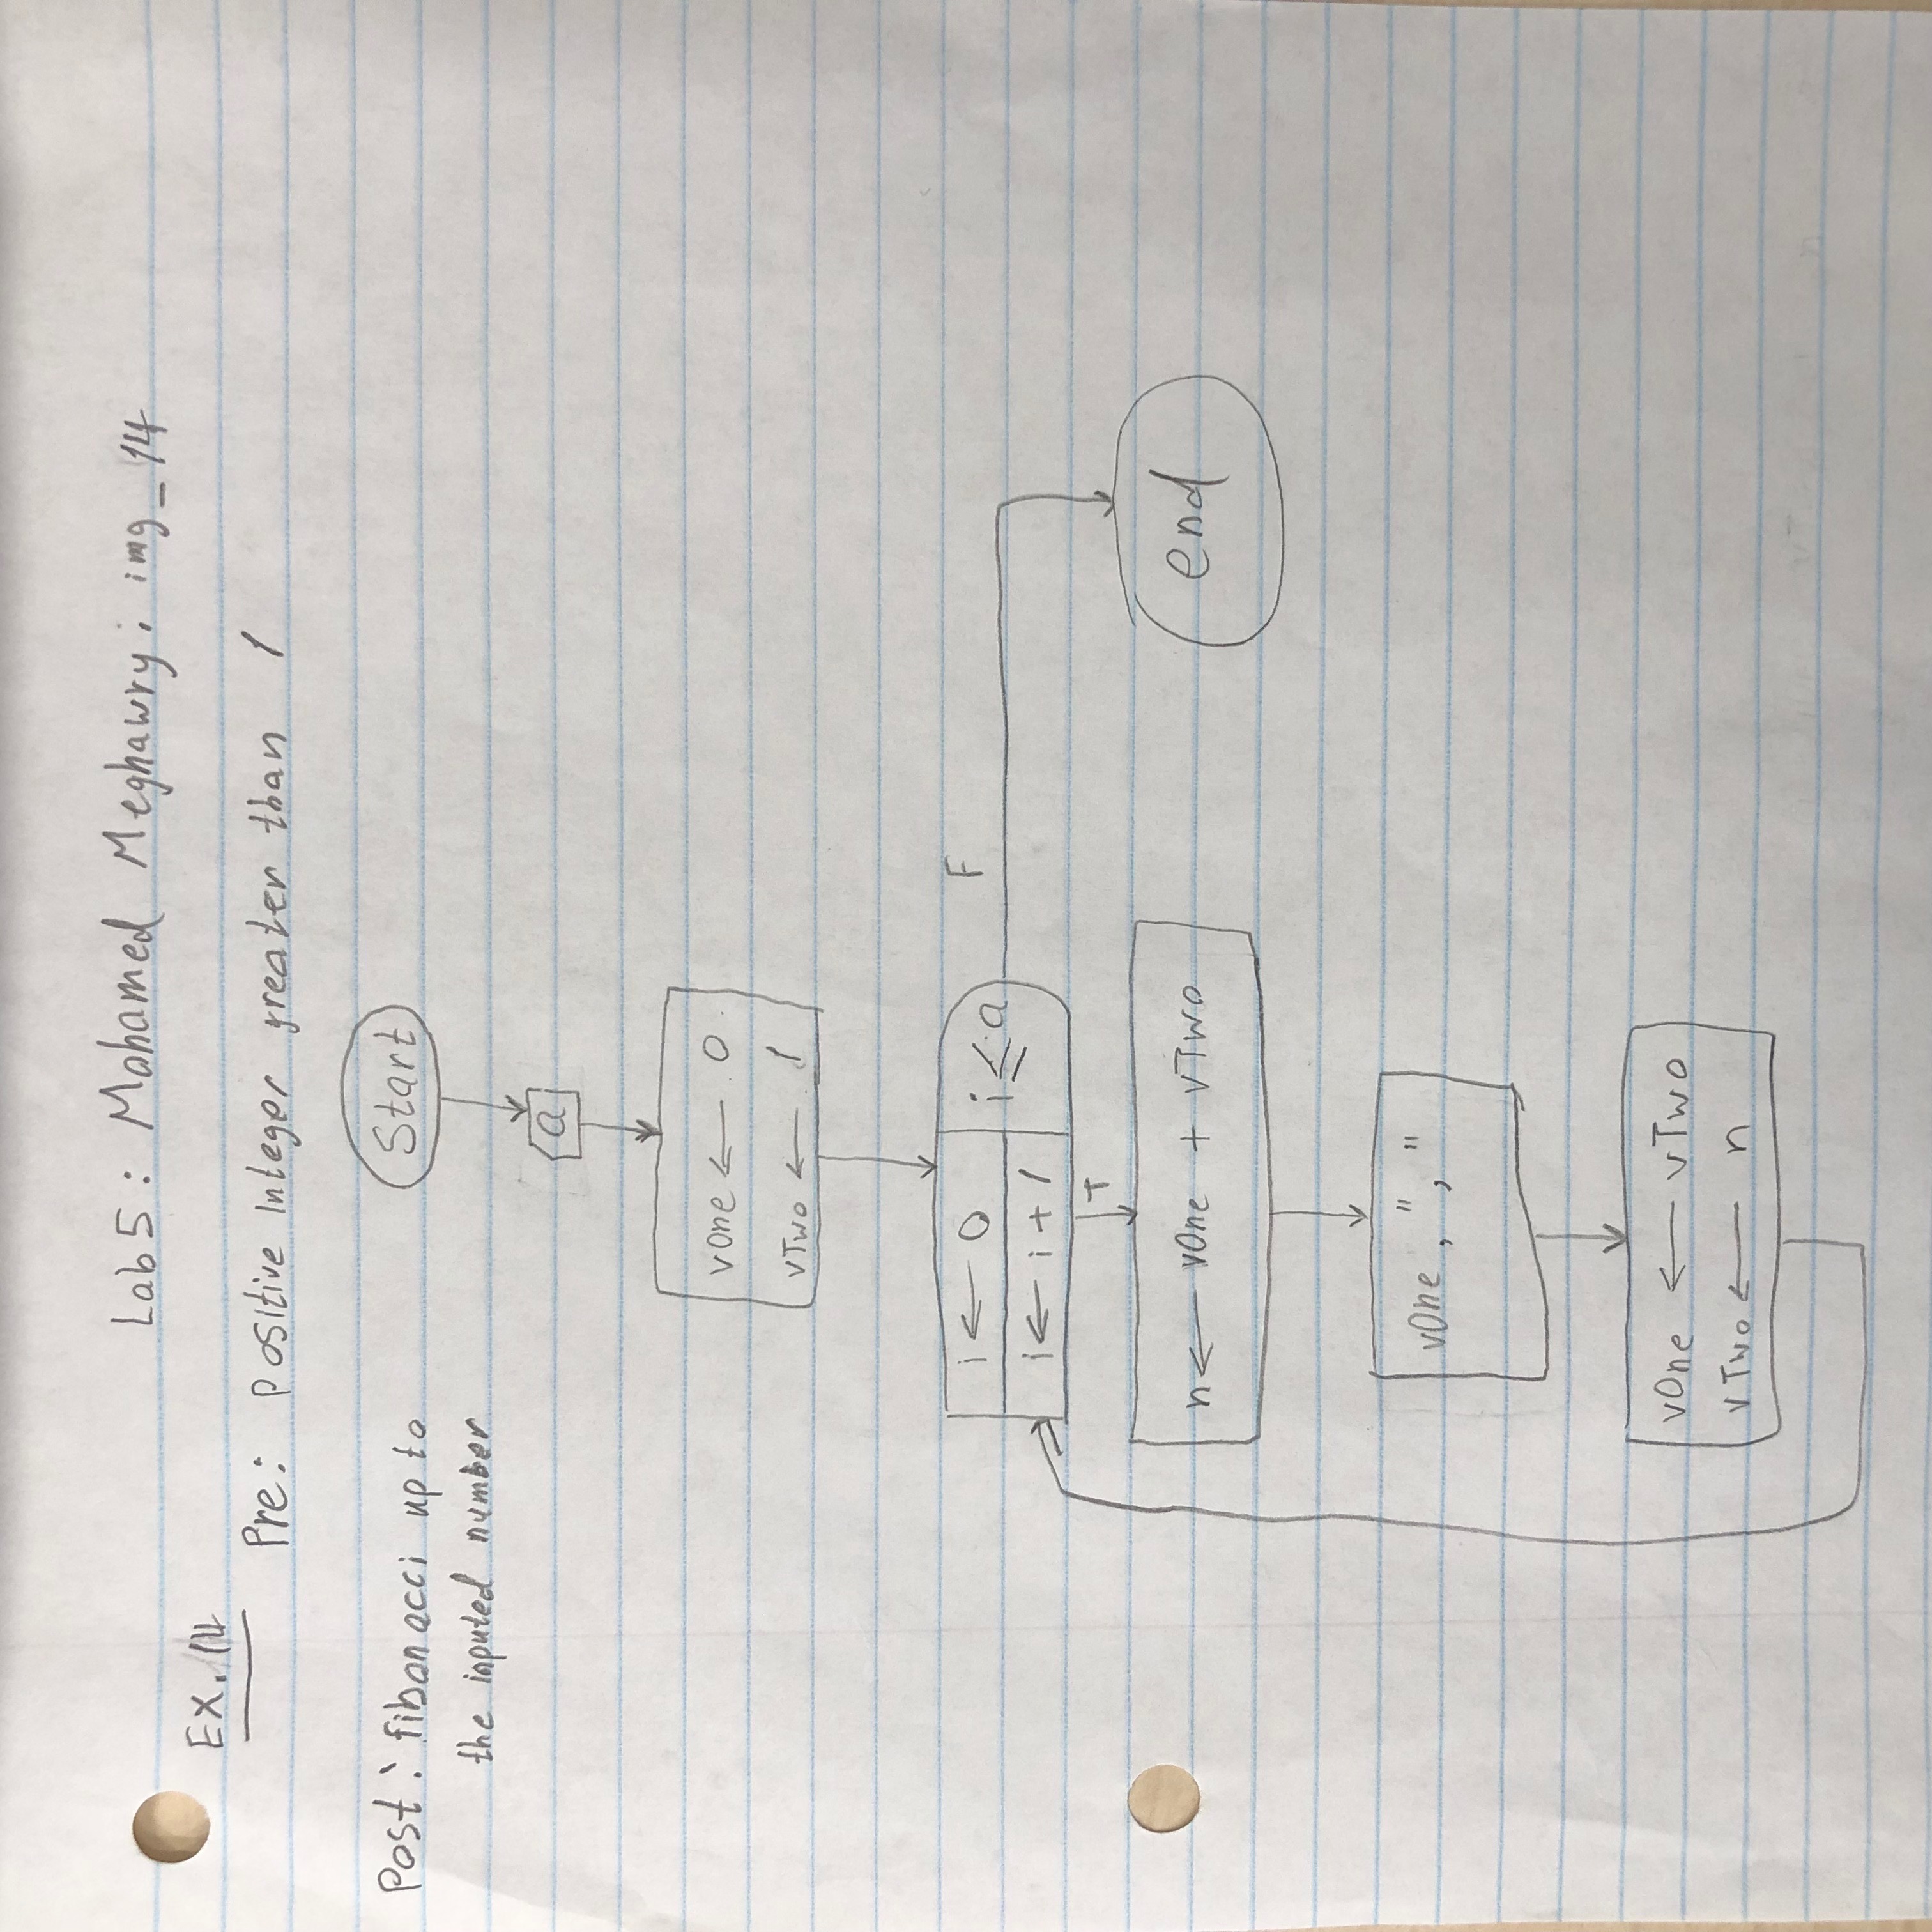 Lab 5 : Mohamed Meghawry ; img_14
EX. 14
Pre: positive integer greater than 1
Post: fibonacci up to
the inputed number
Start
a
vOne ← 0
vTwo ← 1
i ← 0
i ← i + 1
i ≤ a
F
T
n ← vOne + vTwo
end
vOne , " , "
vOne ← vTwo
vTwo ← n